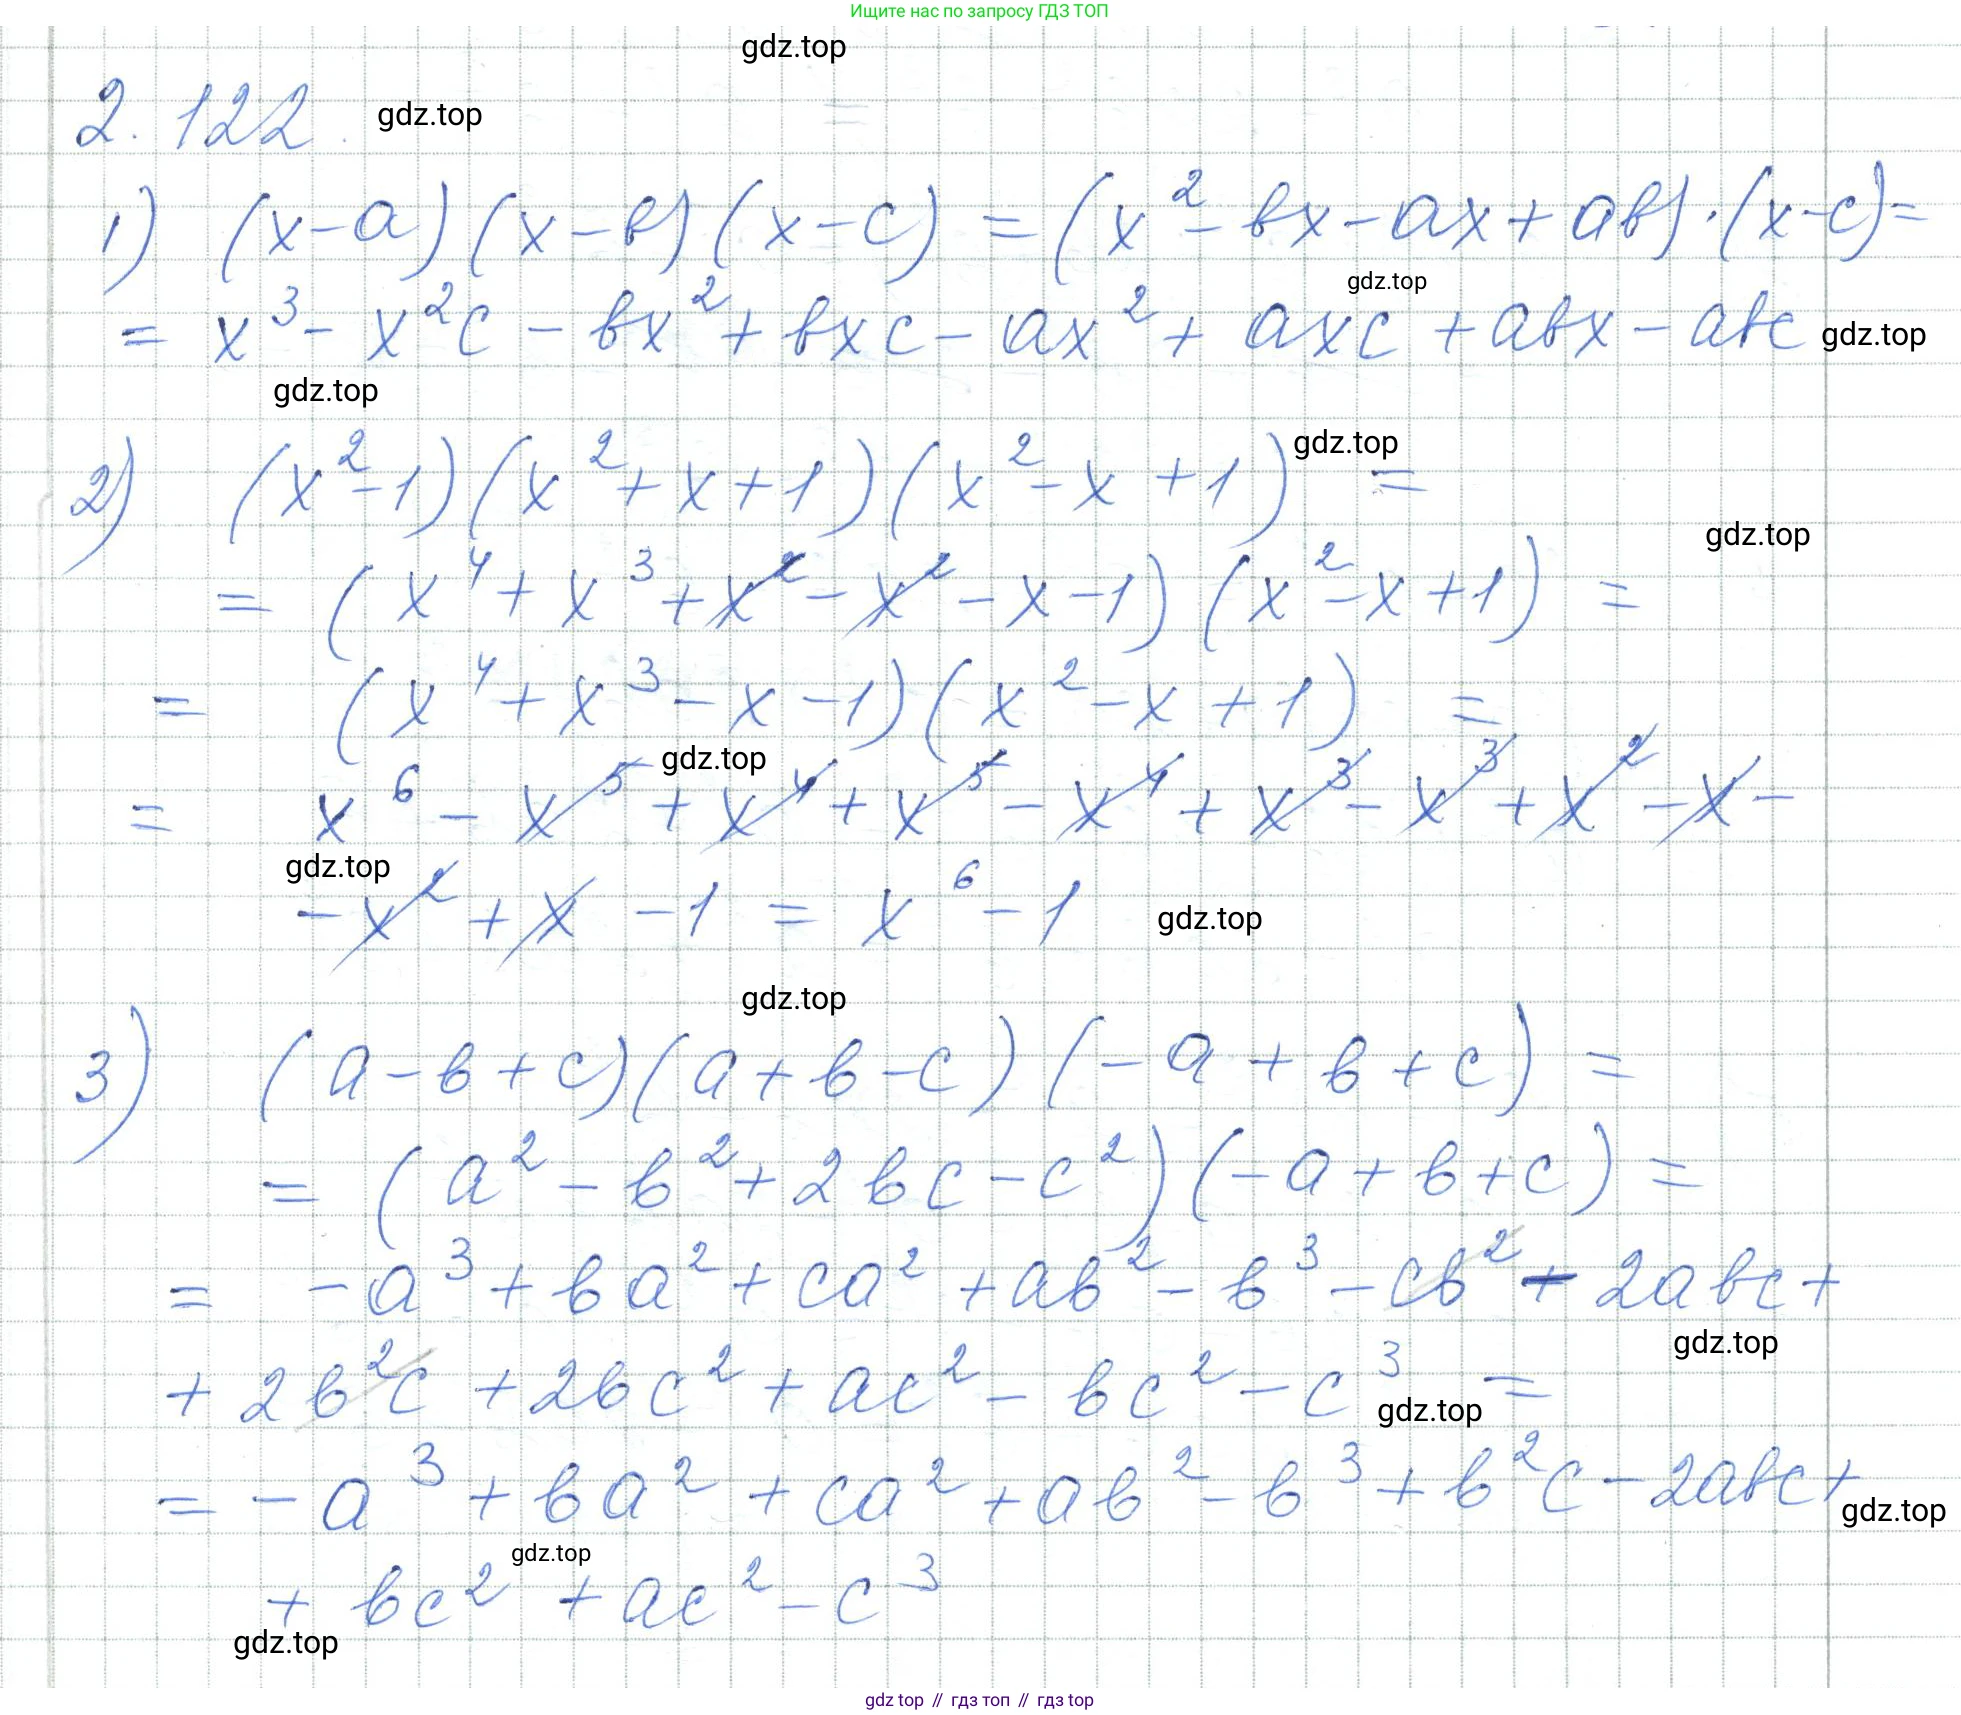 Ищите нас по запросу ГДЗ ТОП
gdz.top
2.122. gdz.top
1) (x-a)(x-в)(x-c) = (x²-вx-ax+aв)·(x-c)=
gdz.top
= x³- x²c - вx²+ вxc - ax²+ axc + aвx - aвc gdz.top
gdz.top
2) (x²-1)(x²+x+1)(x²-x+1) = gdz.top
gdz.top
= (x⁴+x³+x²-x²-x-1)(x²-x+1) =
= (x⁴+x³-x-1)(x²-x+1) =
gdz.top
= x⁶ - x⁵ + x⁴ + x⁵ - x⁴ + x³ - x³ + x² - x -
gdz.top
- x² + x - 1 = x⁶ - 1 gdz.top
gdz.top
3) (a-в+c)(a+в-c)(-a+в+c) =
= (a²-в²+2вc-c²)(-a+в+c) =
= -a³+вa²+ca²+aв²-в³-cв²-2aвc+
gdz.top
+ 2в²c +2вc²+ac²-вc²-c³ =
gdz.top
= -a³+вa²+ca²+aв²-в³+в²c-2aвc+
gdz.top
gdz.top
+ вc² + ac² - c³
gdz.top
gdz top // гдз топ // гдз top